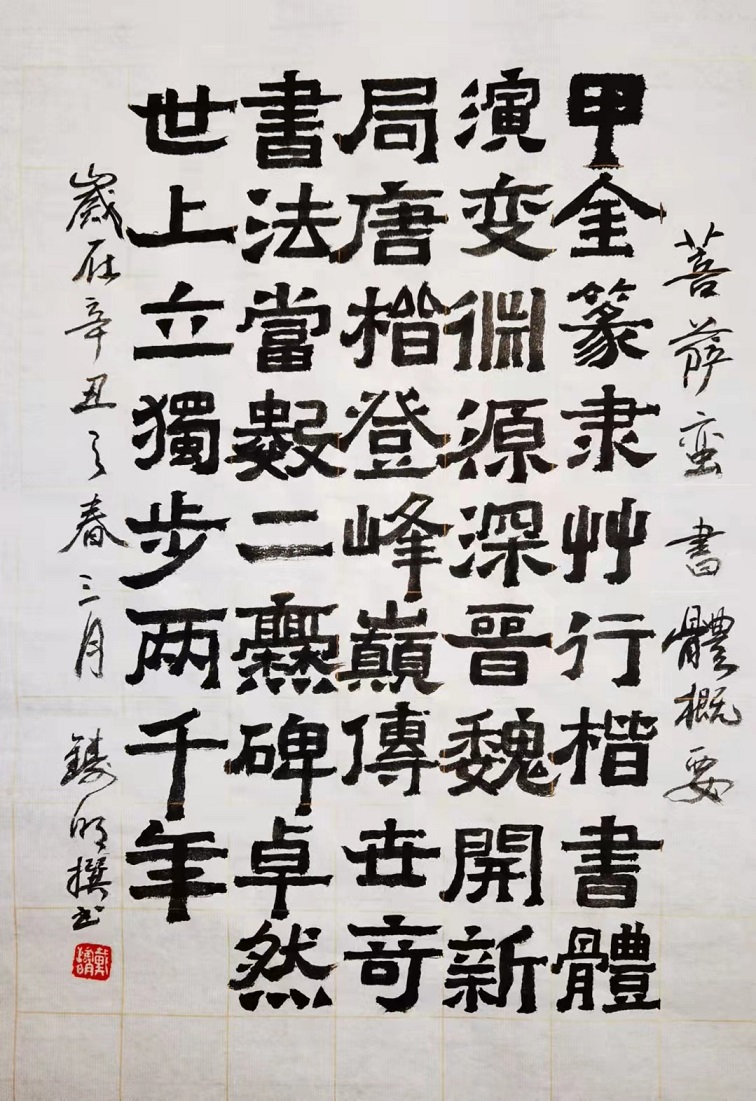 菩薩蛮 書體概要
甲金篆隶艸行楷書體
演变渊源深晉魏開新
局唐楷登峰巔傳世奇
書法當數二爨碑卓然
世上立獨步两千年
歲在辛丑之春三月 鑄明撰书